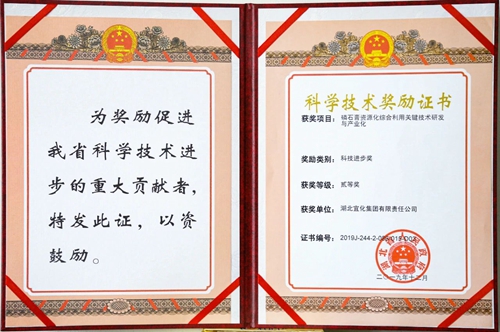 为奖励促进
我省科学技术进
步的重大贡献者，
特发此证，以资
鼓励。
科学技术奖励证书
获奖项目： 磷石膏资源化综合利用关键技术研发
与产业化
奖励类别： 科技进步奖
获奖等级： 贰等奖
获奖单位： 湖北宜化集团有限责任公司
证书编号：
二〇一九年十二月